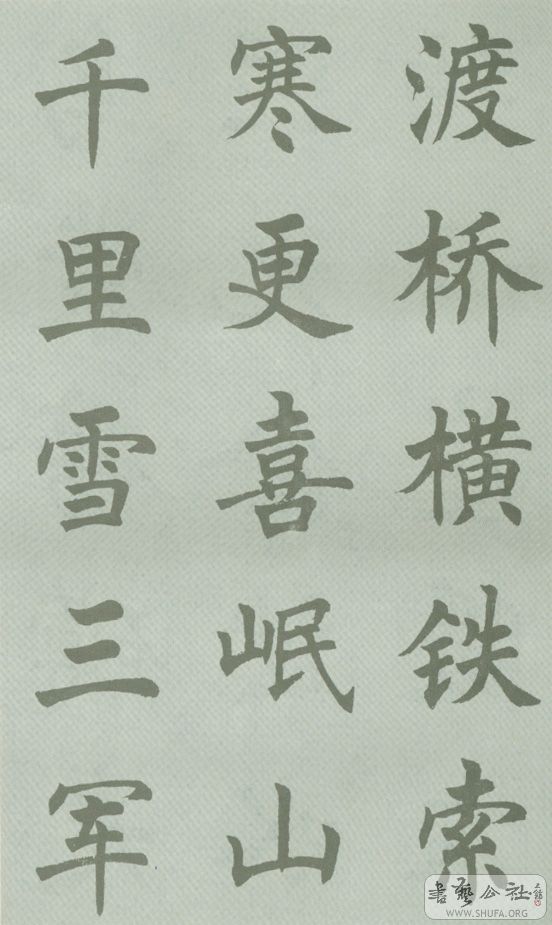 渡桥横铁索
寒更喜岷山
千里雪三军
書藝公社
WWW.SHUFA.ORG